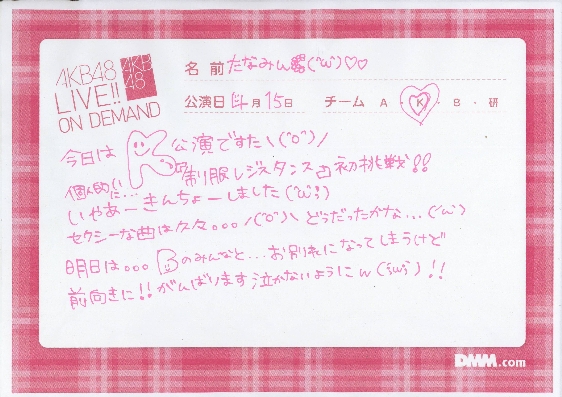 AKB48
LIVE!!
ON DEMAND
AKB
48
名前 たなみん (´ω`)♡♡
公演日 4月15日 チーム A・K・B・研
今日は K 公演ですた\(^o^)/
個人的に… 制服レジスタンス 初挑戦!!
いやあーきんちょーしました(´ω`;)
セクシーな曲は久々。。。/(^o^)\ どうだったかな…(´ω`)
明日は。。。Bのみんなと…お別れになってしまうけど
前向きに!!がんばります泣かないようにw(´ω`)!!
DMM.com